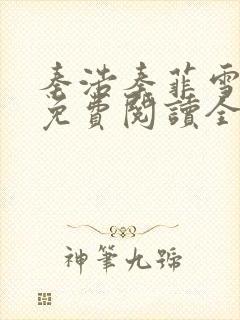 秦浩秦菲雪
免費閱讀全
神筆九號